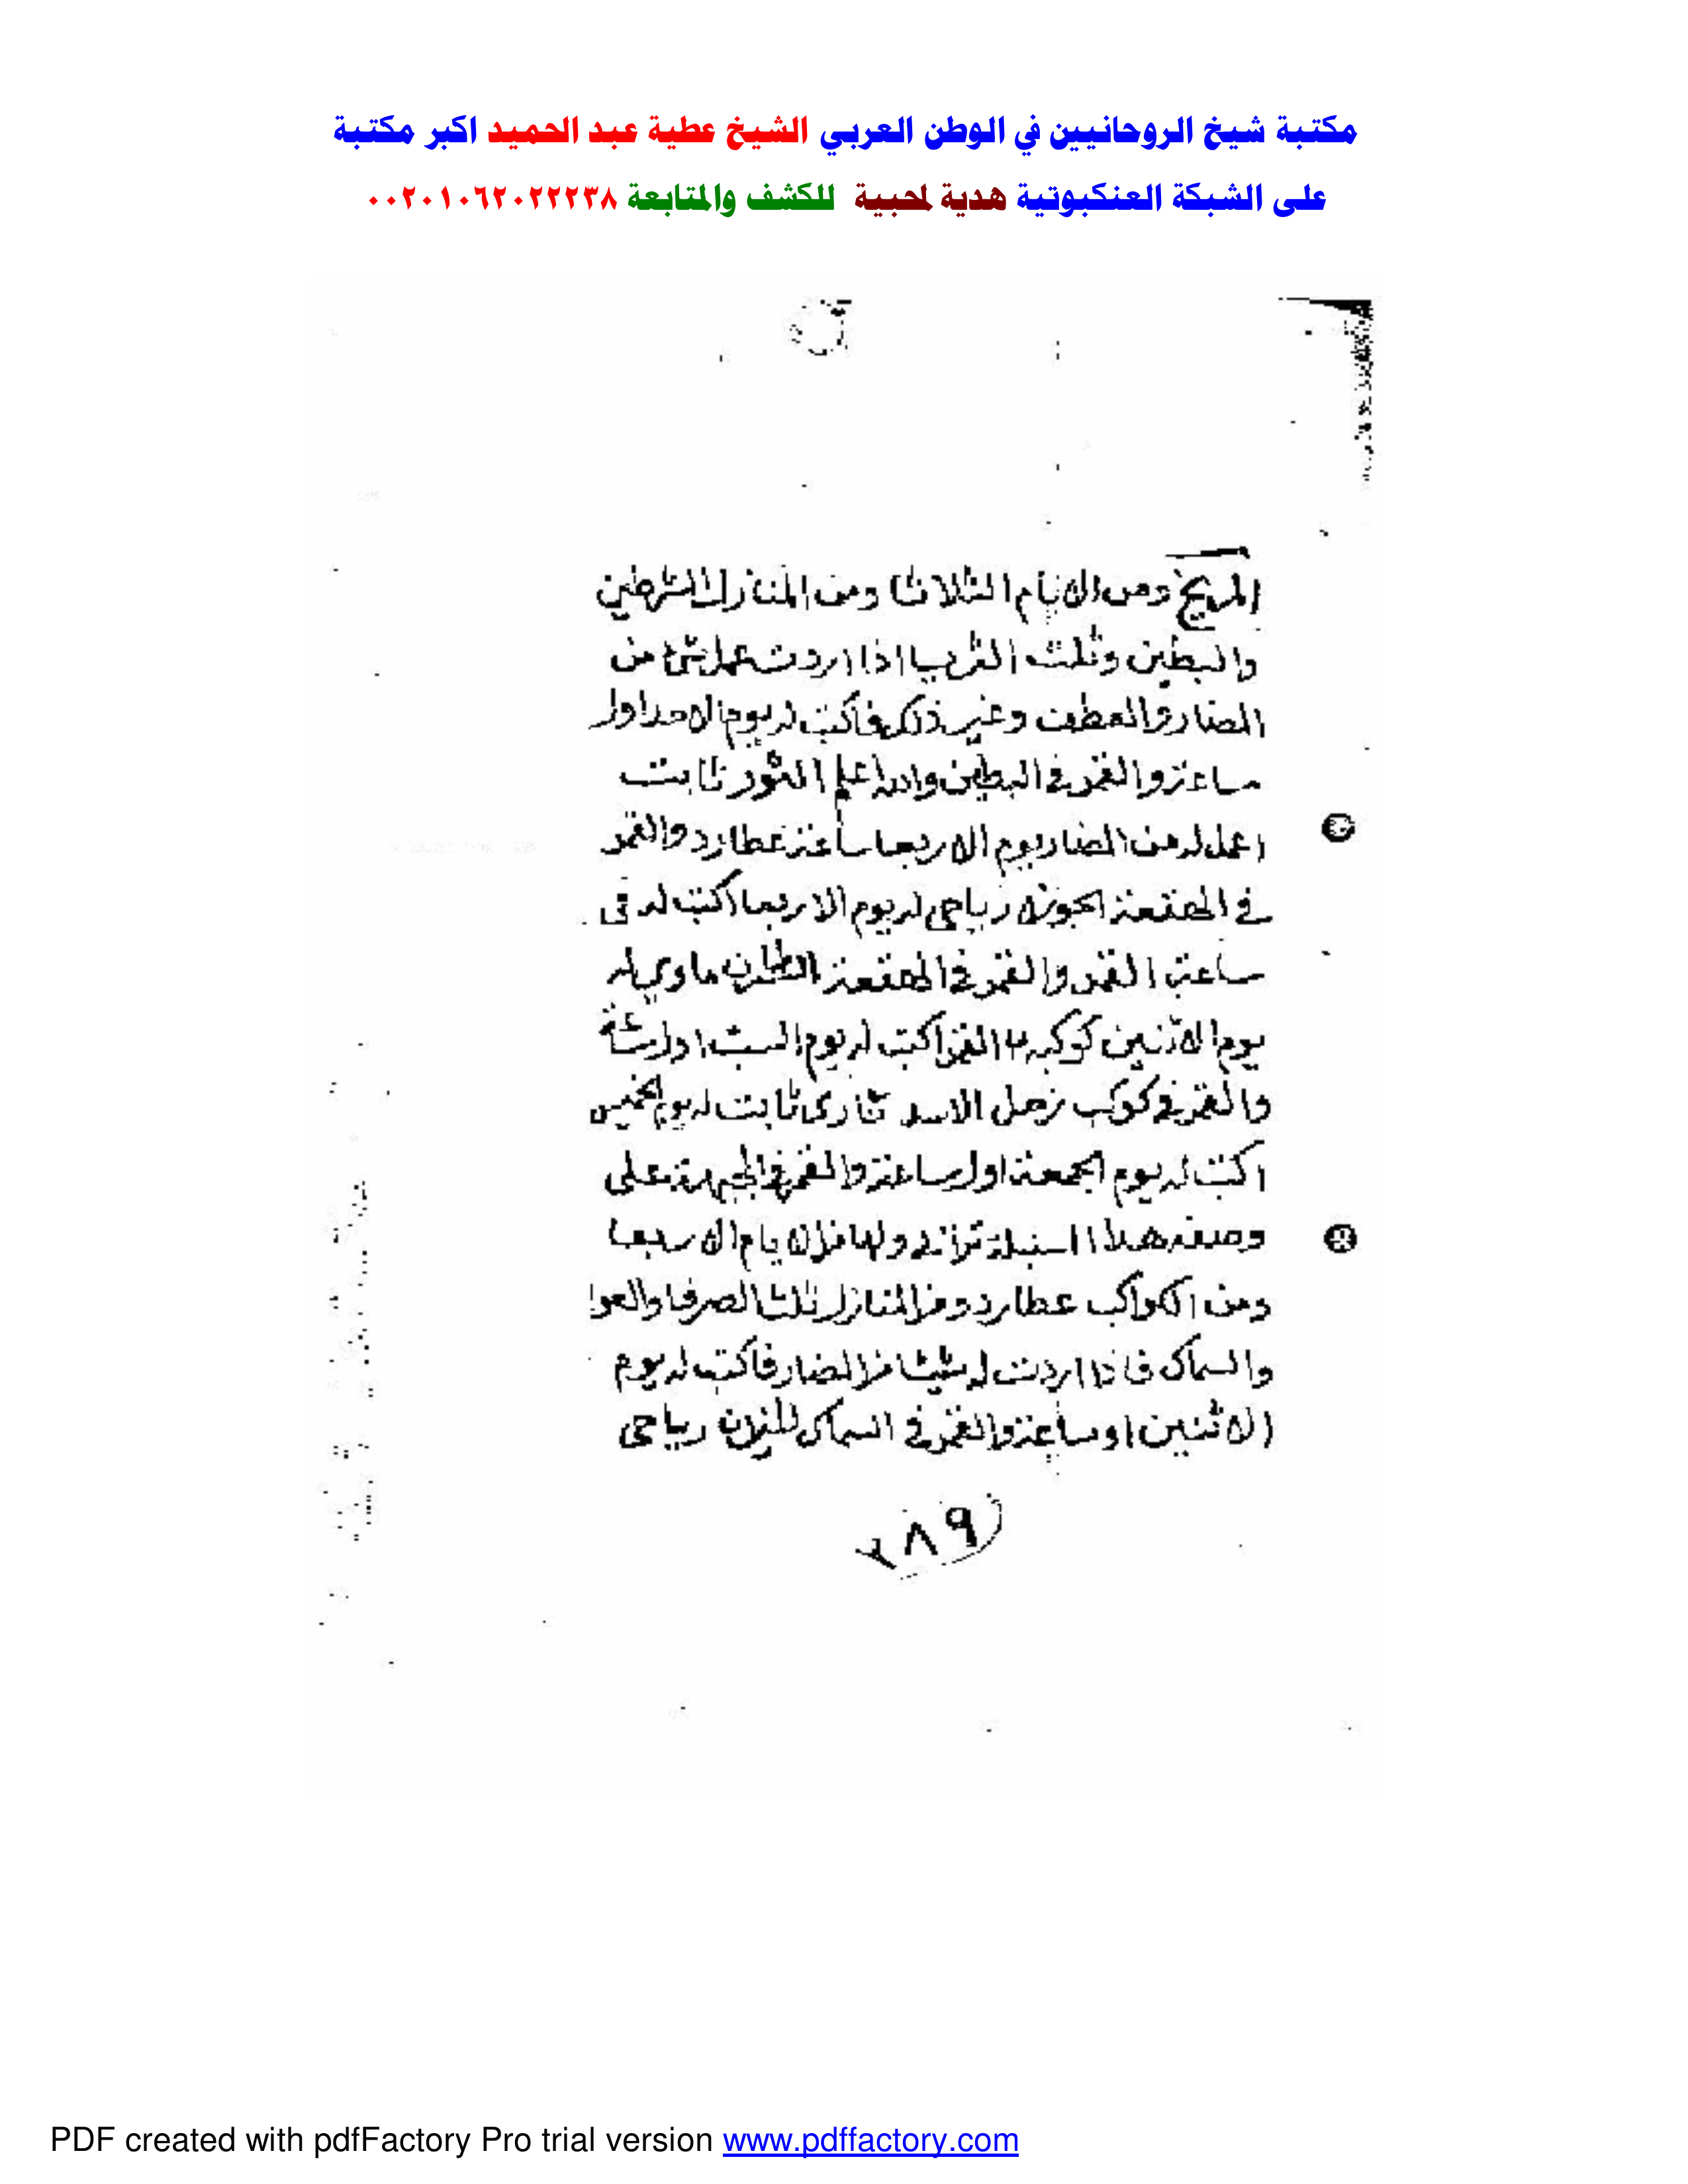 مكتبة شيخ الروحانيين في الوطن العربي الشيخ عطية عبد الحميد اكبر مكتبة
على الشبكة العنكبوتية هدية لمحبية للكشف والمتابعة ٠٠٢٠١٠٦٢٠٢٢٢٣٨
المريخ ومن الايام الثلاثا ومن المنازل الشرطين
والبطين وثلث الثريا اذا اردت عمل شئ من
المضار والعطف وغير ذلك فاكتب له يوم الاحد اول
ساعة والقمر في البطين والله اعلم الثور ثابت
اعمل له من المضار يوم الاربعا ساعة عطارد والقمر
في الهقعة الجوزه رياحي له يوم الاربعا اكتب له في
ساعة القمر والقمر في الهقعة ماوي له
يوم الاثنين كوكبه القمر اكتب له يوم السبت اول
والقمر في كوكب زحل الاسد ناري ثابت له يوم الخميس
اكتب له يوم الجمعة اول ساعة والقمر في الجبهة على
وصفة هذا السنبلة ترابي ولها من الايام الاربعا
ومن الكواكب عطارد ومن المنازل ثلثا الصرفا والعوا
والسماك فاذا اردت له شيئا من المضار فاكتب له يوم
الاثنين او ساعة والقمر في السماك الميزان رياحي
٢٨٩
PDF created with pdfFactory Pro trial version www.pdffactory.com